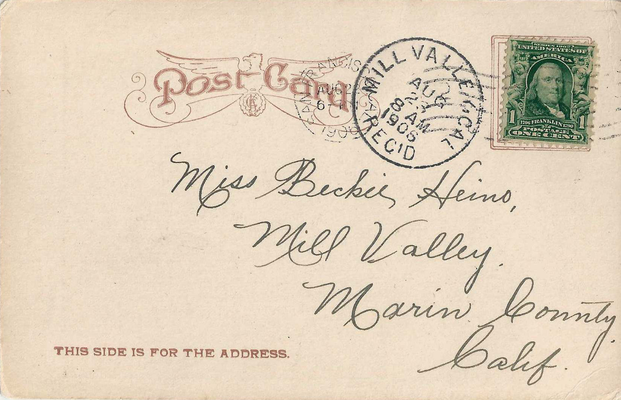 Post Card
SAN FRANCISCO
AUG
6
1906
MILL VALLEY, CAL
AUG
8 AM
REC'D
SERIES 1902
UNITED STATES OF
AMERICA
1706 FRANKLIN 1790
1 POSTAGE 1
ONE CENT
Miss Beckie Heino,
Mill Valley.
Marin County
Calif.
THIS SIDE IS FOR THE ADDRESS.